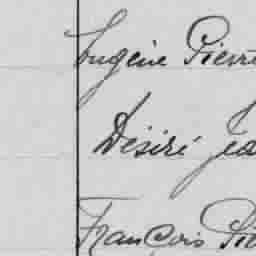 Eugène Pierre
Désiré Jea
François Pie